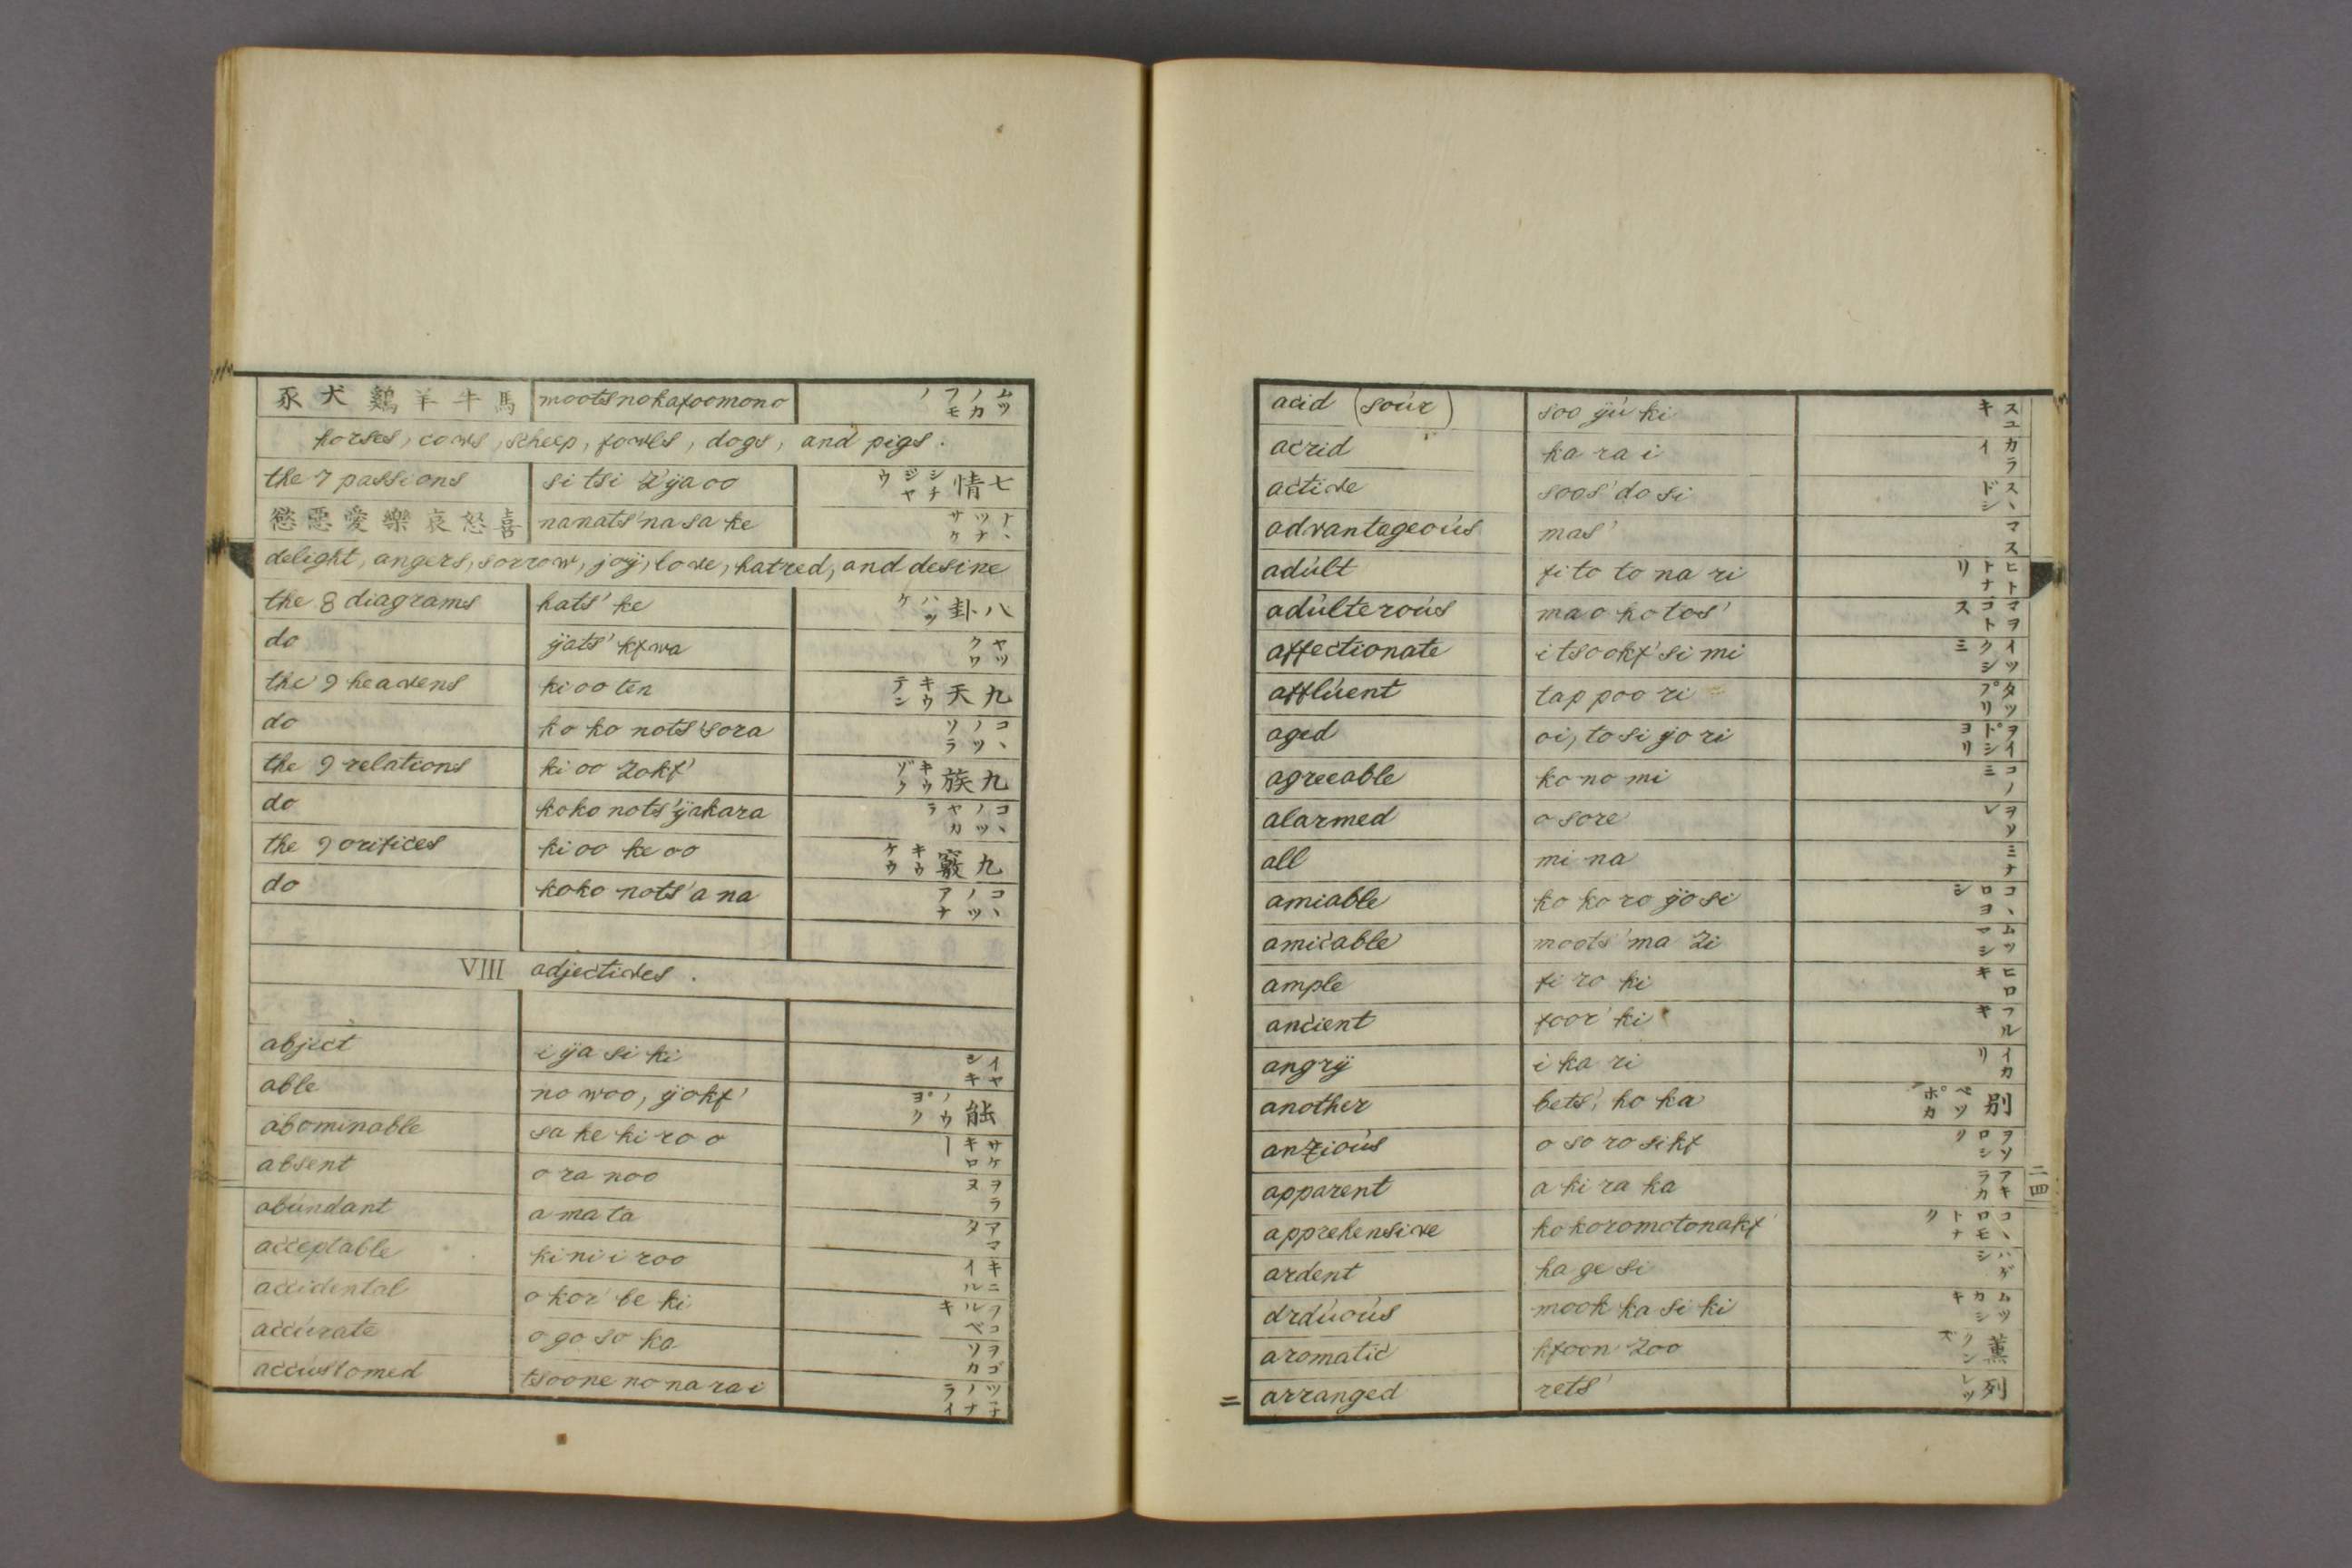 豕犬鷄羊牛馬 mootsnokafoomono ムツノカフモノ
horses, cows, scheep, fowls, dogs, and pigs.
the 7 passions si tsi z'ÿa oo 七情 シチジヤウ
慾惡愛樂哀怒喜 nanats'na sa ke ナヽツナサケ
delight, angers, sorrow, joÿ, love, hatred, and desire
the 8 diagrams hats' ke 八卦 ハツケ
do ÿats' kfwa ヤツクワ
the 9 heavens ki oo ten 九天 キウテン
do ko ko nots'sora コヽノツソラ
the 9 relations ki oo zokf' 九族 キウゾク
do koko nots'ÿakara コヽノツヤカラ
the 9 orifices ki oo ke oo 九竅 キウケウ
do koko nots'a na コヽノツアナ
VIII adjectives.
abject i ÿa si ki イヤシキ
able no woo, ÿokf' 能 ノウ ヨク
abominable sa ke ki ro o サケキロー
absent o ra noo ヲラヌ
abúndant a ma ta アマタ
acceptable ki ni i roo キニイル
accidental o kor' be ki ヲコルベキ
accúrate o go so ka ヲゴソカ
accústomed tsoone no na ra i ツ子ノナライ
acid (soúr) soo ÿú ki スユキ
acrid ka ra i カライ
active soos' do si スヽドシ
advantageoús mas' マス
adúlt fi to to na ri ヒトトナリ
adúlteroús ma o ko tos' マヲコトス
affectionate i tsookf' si mi イツクシミ
afflúent tap poo ri タツプリ
aged oi, to si ÿo ri ヲイ トシヨリ
agreeable ko no mi コノミ
alarmed o sore ヲソレ
all mi na ミナ
amiable ko ko ro ÿo si コヽロヨシ
amicable moots' ma zi ムツマシ
ample fi ro ki ヒロキ
ancient foor' ki フルキ
angrÿ i ka ri イカリ
another bets', ho ka 別 ベツ ホカ
anxioús o so ro sikf ヲソロシク
apparent a ki ra ka アキラカ
apprehensive ko koromotonakf' コヽロモトナク
ardent ha ge si ハゲシ
drdúoús mook ka si ki ムツカシキ
aromatic kfoon zoo 薫 クンズ
arranged rets' 列 レツ
二四
二